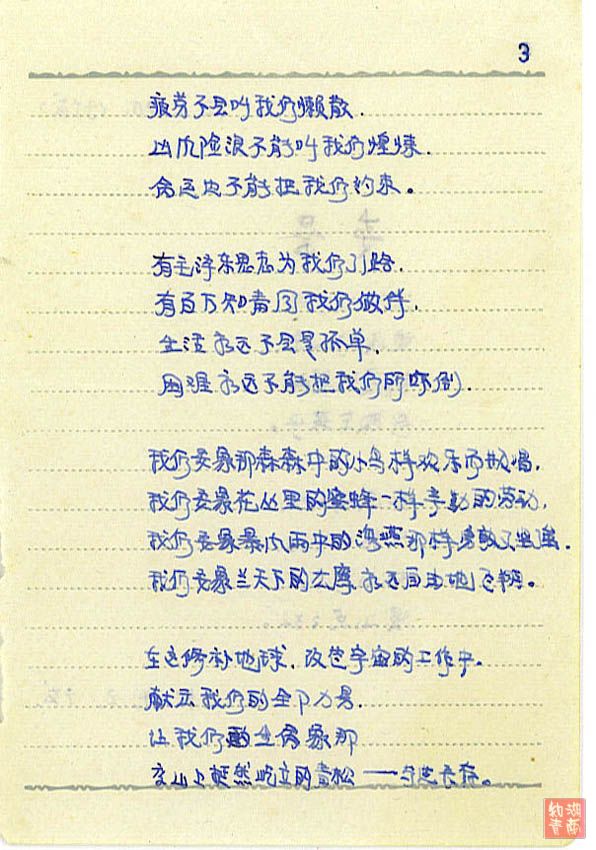 3
疲劳不会叫我们懒散.
凶风险浪不能叫我们惶悚.
命运也不能把我们约束。
有毛泽东思想为我们引路.
有百万知青同我们做伴.
生活永远不会是孤单.
困难永远不能把我们所吓倒.
我们要象那森林中的小鸟样欢乐而歌唱.
我们要象花丛里的蜜蜂一样辛勤的劳动.
我们要象暴风雨中的海燕那样勇敢又坚强.
我们要象兰天下的太阳永远自由地飞翔。
在这修补地球.改造宇宙的工作中。
献出我们的全部力量.
让我们的生活象那
高山上挺然屹立的青松——与世长存。
湖南知青